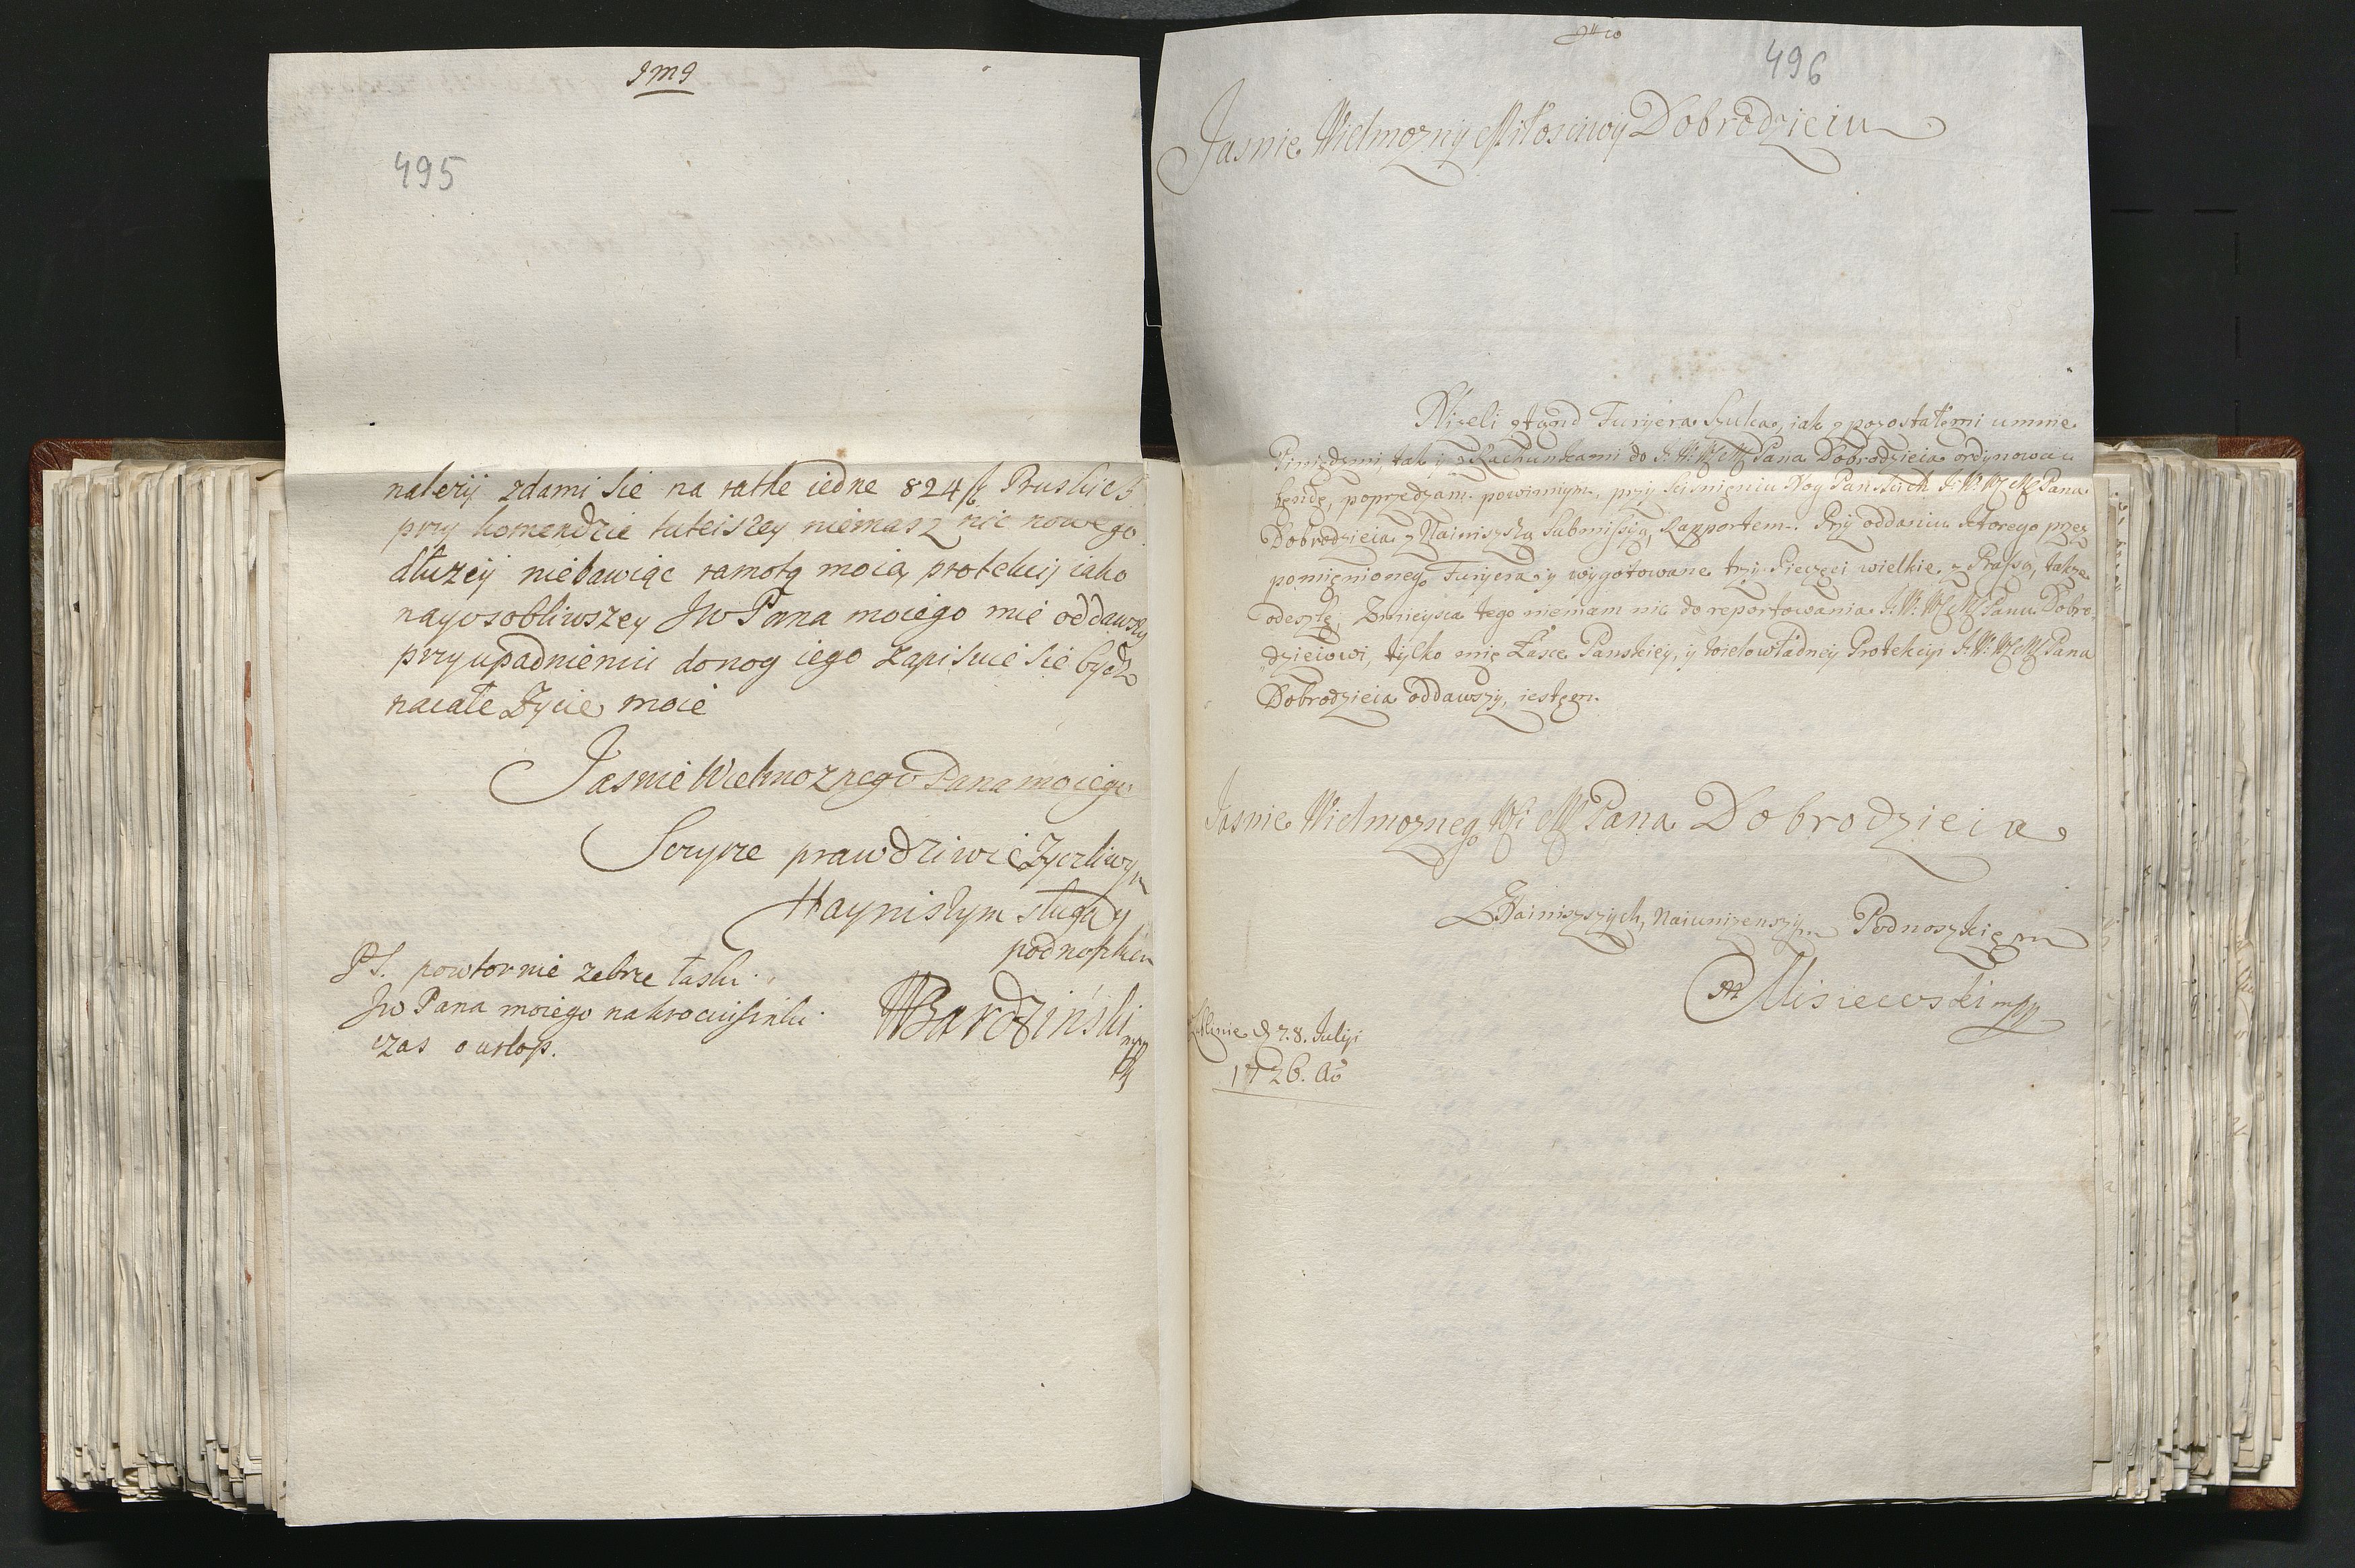 495
nalezij zdami sie na ratke iedne 824 Pruskich
przy komendzie tuteiszey niemasz nic nowego
dłuzey niebawiąc ramotą moią protekcij iako
nayosobliwszey Jw Pana moiego mie oddawszy
przyupadnieniu donog iego zapisuie sie bydz
nacałe Zycie moie
Jasnie Wielmoznego Pana moiego
Sczyrze prawdziwie Zyczliwym
Naynisszym sługą y
podnoszkiem
WBardziński mpp
PS. powtornie zebrze łaski
Jw Pana moiego na
czas o urlop.
496
Jasnie Wielmozny Miłosciwy Dobrodzieiu
Nizeli ztąnd Furyjera, iak z pozostałemi umnie
Pieniędzmi, tak i z Rachunkami do J: W: W M Pana Dobrodzieia ordynować
będę, poprzedzam powinnym, przy scisnieniu Nog Panskich J: W: W M Pana
Dobrodzieia z Nainiszszą Submissyją, Rapportem. Przy oddaniu ktorego przez
pomienionego Furyjera, y wygotowane trzy Pieczęci wielkie z Prassą, także
odeszlę; Zmieysca tego niemam nic do reportowania J: W: W M Panu Dobro-
dzieiowi, tylko mię Łasce Panskiey, y wielowładney Protekcyi J: W: W M Pana
Dobrodzieia oddawszy, iestem.
Jasnie Wielmoznego W M Pana Dobrodzieia
Nainiszszych, naiunizenszym Podnoszkiem
Misiewski mpp
28. Julij
1726. Ao